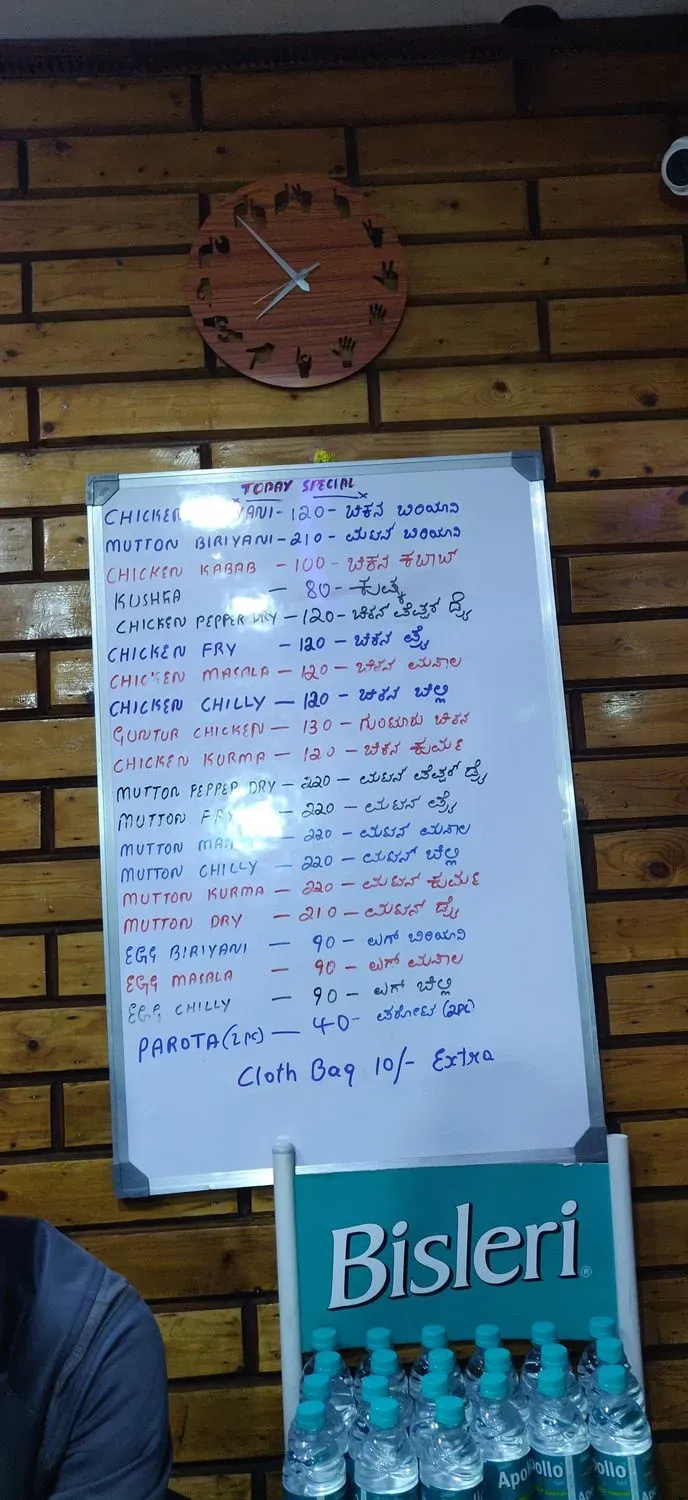 TODAY SPECIAL
CHICKEN YANI - 120 - ಚಿಕನ ಬಿರಿಯಾನಿ
MUTTON BIRIYANI - 210 - ಮಟನ ಬಿರಿಯಾನಿ
CHICKEN KABAB - 100 - ಚಿಕನ ಕಬಾಬ್
KUSHKA - 80 - ಕುಷ್ಕ
CHICKEN PEPPER DRY - 120 - ಚಿಕನ ಪೆಪ್ಪರ ಡ್ರೈ
CHICKEN FRY - 120 - ಚಿಕನ ಫ್ರೈ
CHICKEN MASALA - 120 - ಚಿಕನ ಮಸಾಲ
CHICKEN CHILLY - 120 - ಚಿಕನ ಚಿಲ್ಲಿ
GUNTUR CHICKEN - 130 - ಗುಂಟೂರು ಚಿಕನ
CHICKEN KURMA - 120 - ಚಿಕನ ಕುರ್ಮ
MUTTON PEPPER DRY - 220 - ಮಟನ ಪೆಪ್ಪರ್ ಡ್ರೈ
MUTTON FRY - 220 - ಮಟನ ಫ್ರೈ
MUTTON MAS - 220 - ಮಟನ ಮಸಾಲ
MUTTON CHILLY - 220 - ಮಟನ್ ಚಿಲ್ಲಿ
MUTTON KURMA - 220 - ಮಟನ್ ಕುರ್ಮ
MUTTON DRY - 210 - ಮಟನ ಡ್ರೈ
EGG BIRIYANI - 90 - ಎಗ್ ಬಿರಿಯಾನಿ
EGG MASALA - 90 - ಎಗ್ ಮಸಾಲ
EGG CHILLY - 90 - ಎಗ್ ಚಿಲ್ಲಿ
PAROTA (2 PC) - 40 - ಪರೋಟ (2PC)
Cloth Bag 10/- Extra
Bisleri
Apollo
ollo